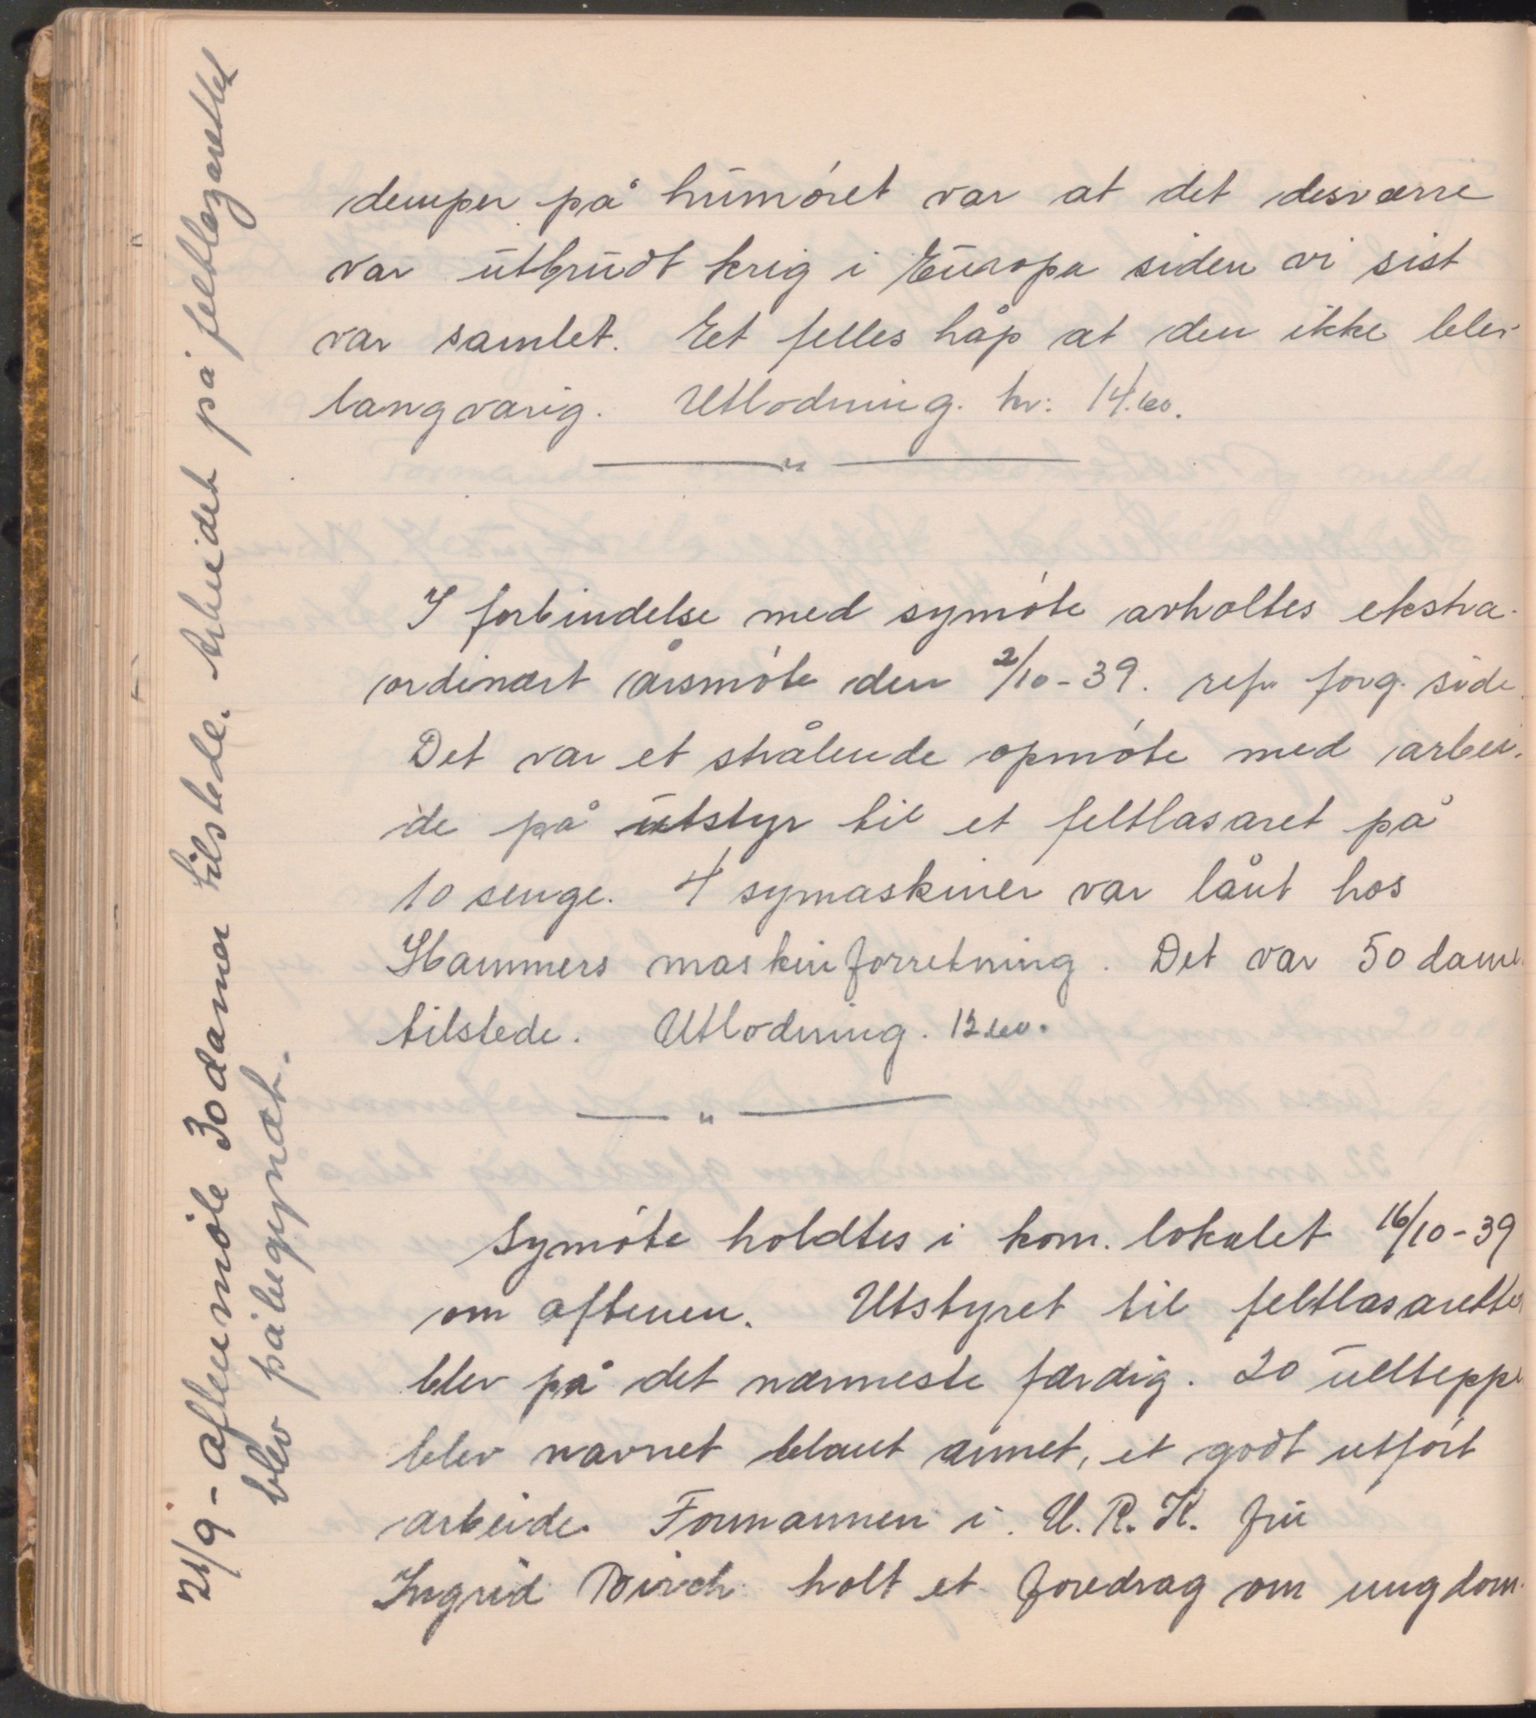 demper på humøret var at det desværre
var utbrudt krig i Europa siden vi sist
var samlet. Et felles håp at den ikke blev
langvarig. Utlodning. kr: 14.60.
I forbindelse med symøte avholtes ekstra-
ordinært årsmøte den 2/10-39. ref. forg. side.
Det var et strålende opmøte med arbei-
de på utstyr til et feltlasaret på
10 senge. 4 symaskiner var lånt hos
Hammers maskinforretning. Det var 50 damer
tilstede. Utlodning. 12.60.
Symøte holdtes i kom. lokalet 16/10-39
om aftenen. Utstyret til feltlasarettet
blev på det nærmeste færdig. 20 ulltepper
blev navnet blant annet, et godt utført
arbeide. Formannen i U. R. K. fru
Ingrid Birch holt et foredrag om ungdom-
21/9 - aftenmøte 30 damer tilstede. Arbeidet på feltlazarettet
blev påbegynat.